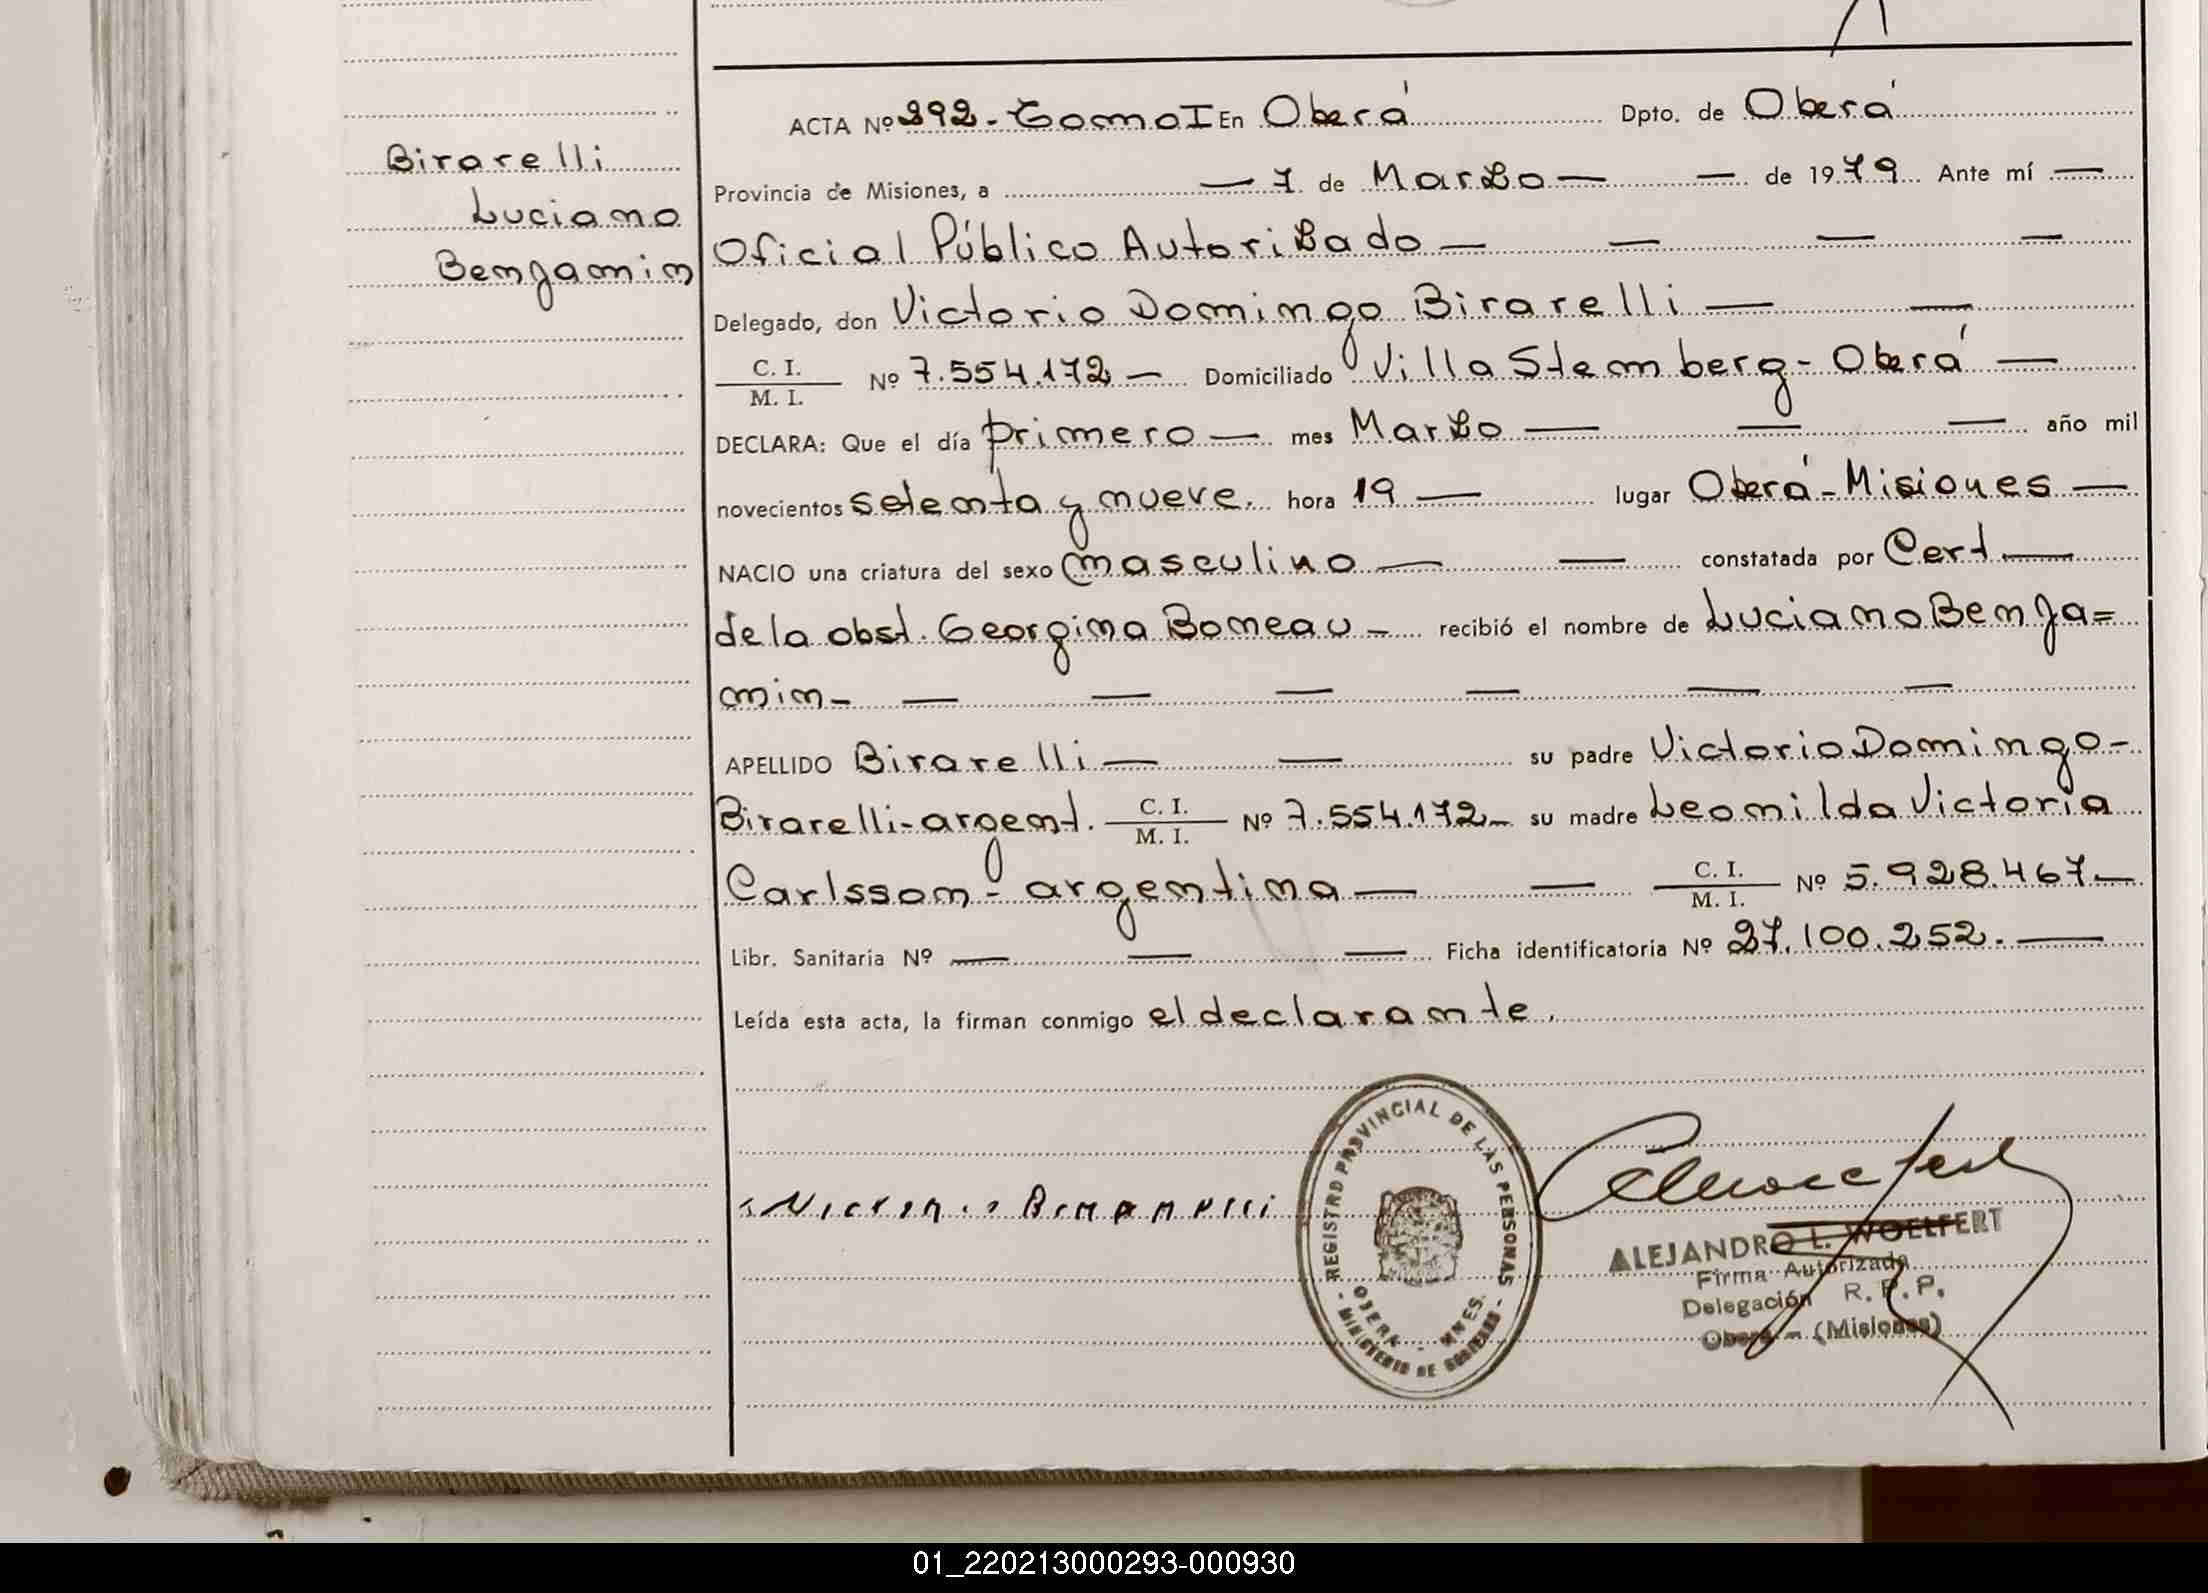 Birarelli
Luciano
Benjamin
ACTA Nº 292 - Tomo I En Oberá Dpto. de Oberá
Provincia de Misiones, a — 7 de Marzo — — de 1979 Ante mí —
Oficial Público Autorizado — — — —
Delegado, don Victorio Domingo Birarelli — —
C. I.
M. I. Nº 7.554.172 — Domiciliado Villa Stemberg - Oberá —
DECLARA: Que el día primero — mes Marzo — — — año mil
novecientos setenta y nueve. hora 19 — lugar Oberá - Misiones —
NACIO una criatura del sexo masculino — — constatada por Cert. —
de la obst. Georgina Boneau — recibió el nombre de Luciano Benja=
min — — — — — — —
APELLIDO Birarelli — — su padre Victorio Domingo -
Birarelli - argent. C. I. M. I. Nº 7.554.172 — su madre Leonilda Victoria
Carlsson - argentina — — C. I. M. I. Nº 5.928.467 —
Libr. Sanitaria Nº — — — Ficha identificatoria Nº 27.100.252. —
Leída esta acta, la firman conmigo el declarante.
Victorio Birarelli
- REGISTRO PROVINCIAL DE LAS PERSONAS -
OBERA - MNES.
MINISTERIO DE GOBIERNO
ALEJANDRO L. WOELFERT
Firma Autorizada
Delegación R. P. P.
Oberá - (Misiones)
01_220213000293-000930